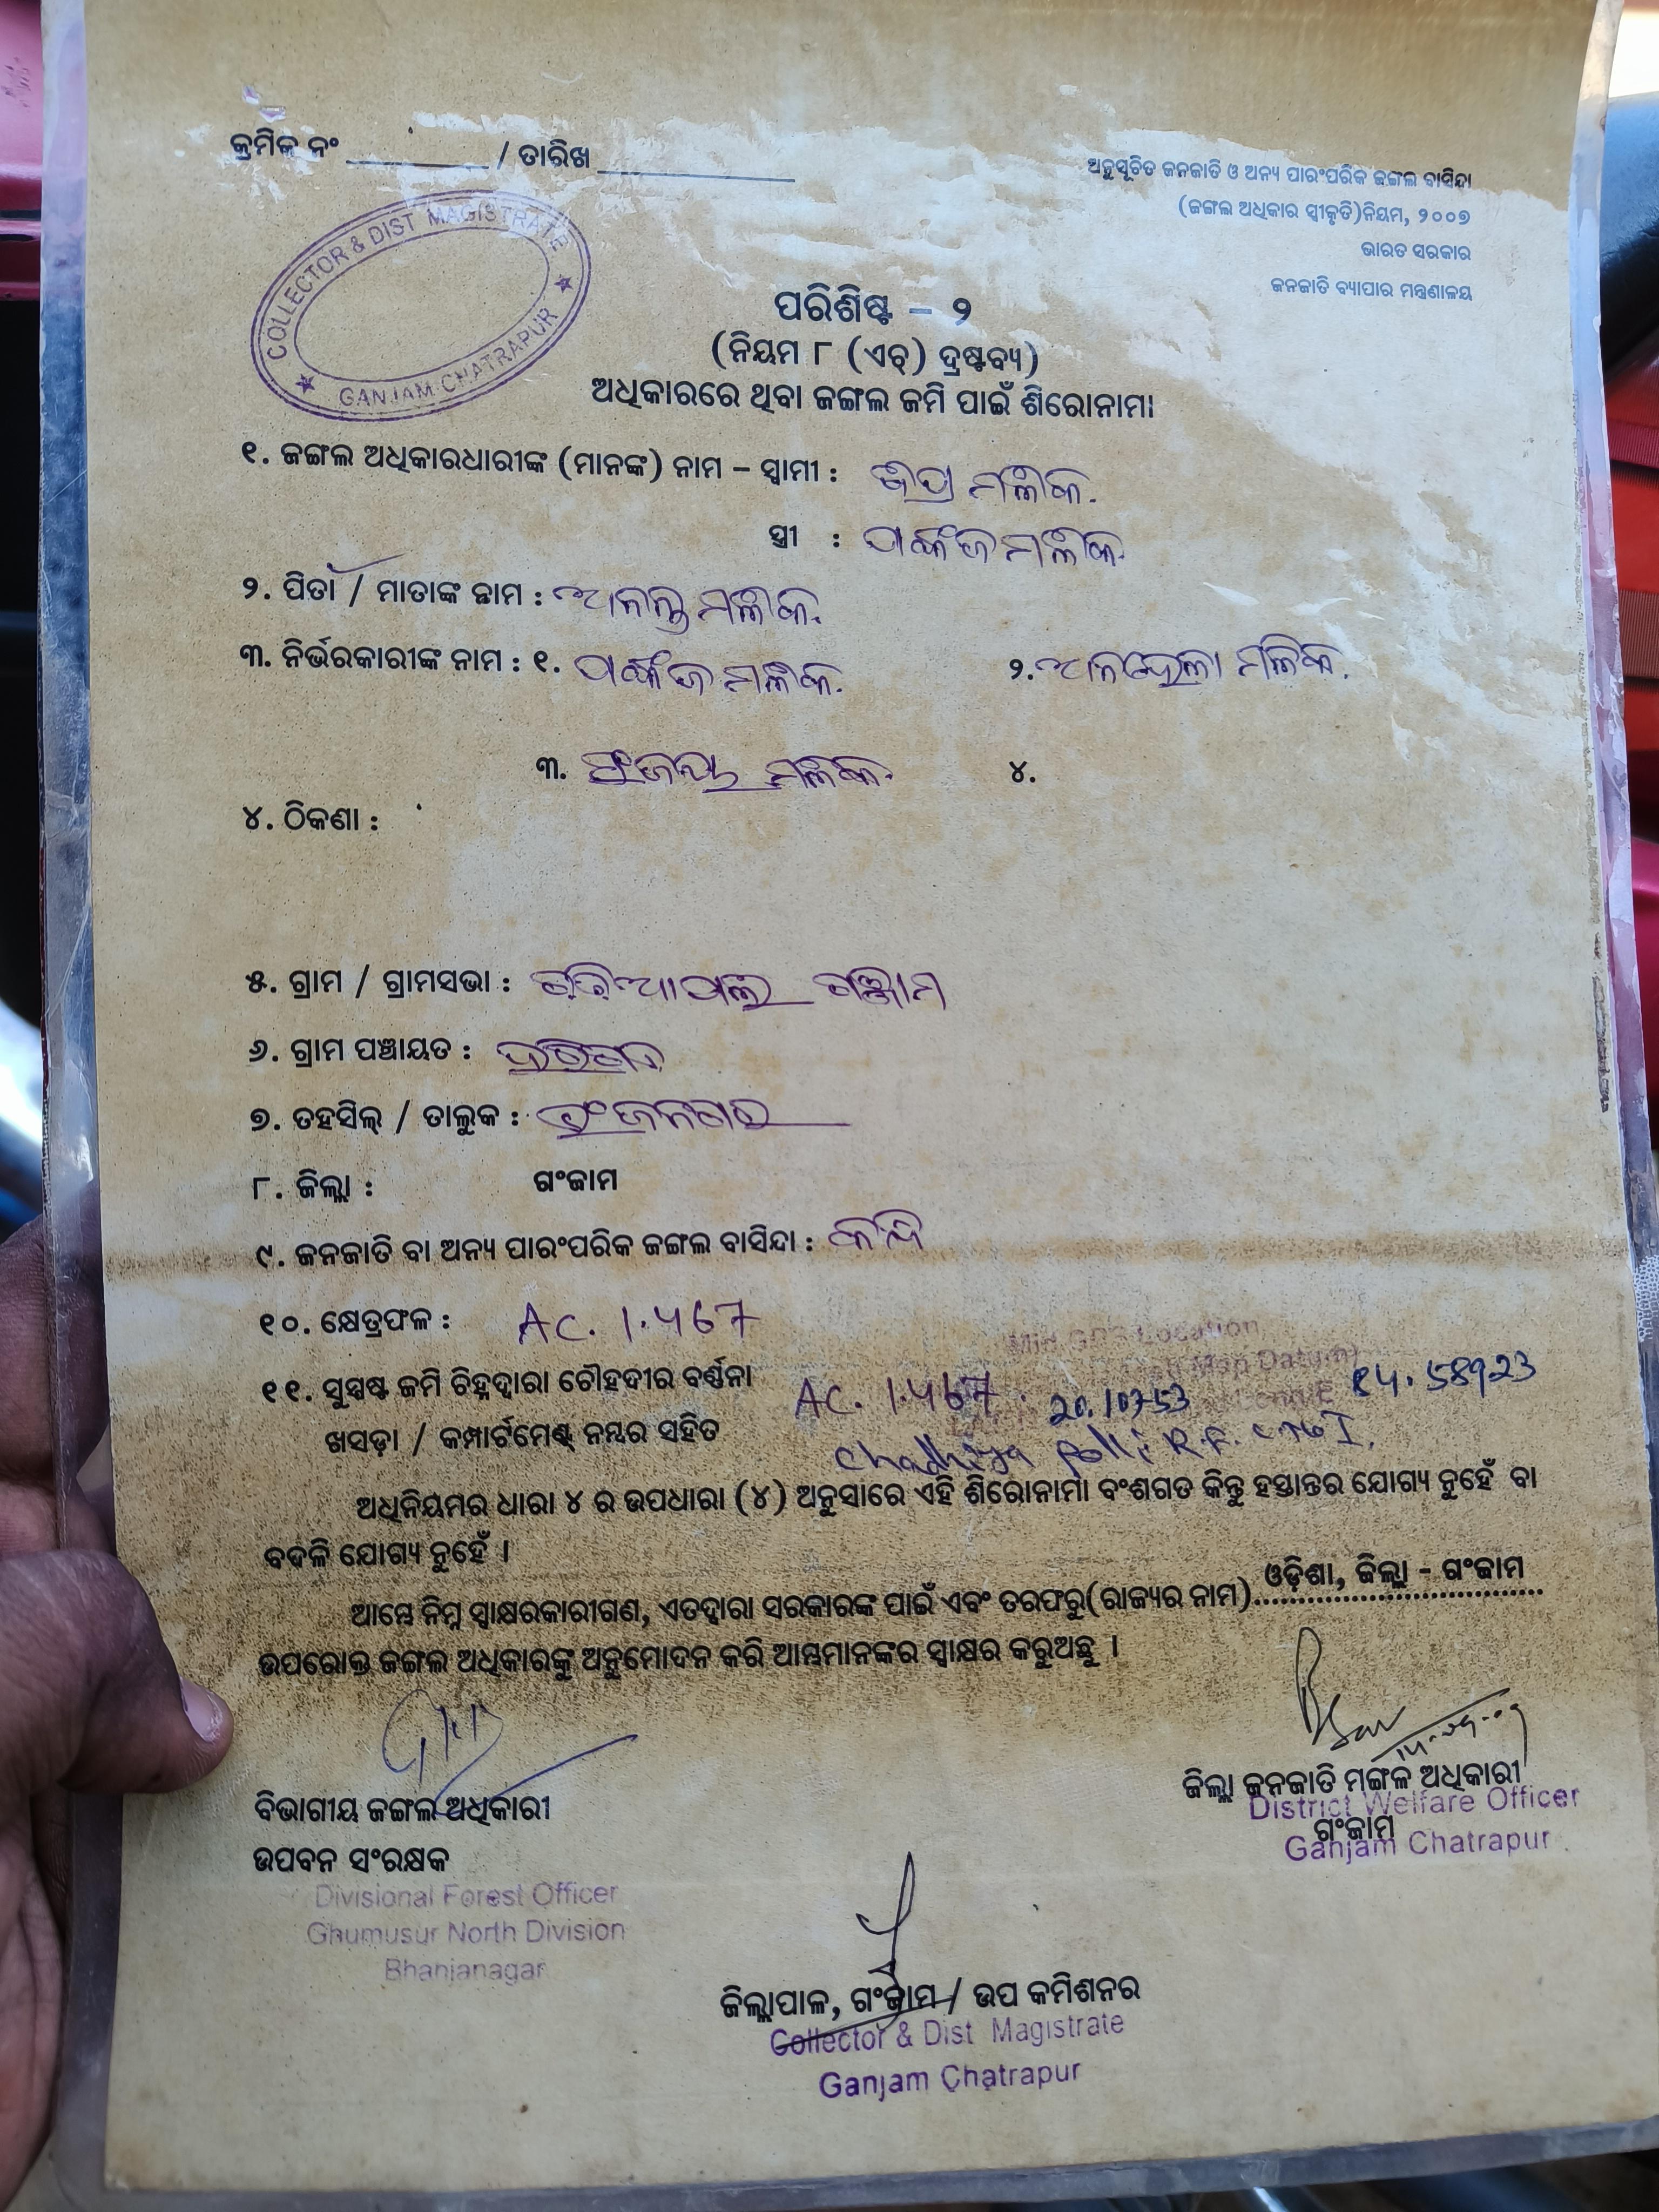 କ୍ରମିକ ନଂ / ତାରିଖ
ଅନୁସୂଚିତ ଜନଜାତି ଓ ଅନ୍ୟ ପାରଂପରିକ ଜଙ୍ଗଲ ବାସିନ୍ଦା
(ଜଙ୍ଗଲ ଅଧିକାର ସ୍ୱୀକୃତି)ନିୟମ, ୨୦୦୭
ଭାରତ ସରକାର
ଜନଜାତି ବ୍ୟାପାର ମନ୍ତ୍ରଣାଳୟ
COLLECTOR & DIST MAGISTRATE
GANJAM CHATRAPUR
ପରିଶିଷ୍ଟ – ୨
(ନିୟମ ୮ (ଏଚ୍) ଦ୍ରଷ୍ଟବ୍ୟ)
ଅଧିକାରରେ ଥିବା ଜଙ୍ଗଲ ଜମି ପାଇଁ ଶିରୋନାମା
୧. ଜଙ୍ଗଲ ଅଧିକାରଧାରୀଙ୍କ (ମାନଙ୍କ) ନାମ – ସ୍ୱାମୀ : ମଲିକ
ସ୍ତ୍ରୀ : ପଙ୍କଜ ମଲିକ
୨. ପିତା / ମାତାଙ୍କ ନାମ : ଅନନ୍ତ ମଲିକ
୩. ନିର୍ଭରକାରୀଙ୍କ ନାମ : ୧. ପଙ୍କଜ ମଲିକ ୨. ମଲିକ
୩. ମଲିକ ୪.
୪. ଠିକଣା :
୫. ଗ୍ରାମ / ଗ୍ରାମସଭା : ଗଞ୍ଜାମ
୬. ଗ୍ରାମ ପଞ୍ଚାୟତ :
୭. ତହସିଲ୍ / ତାଲୁକ : ଭଂଜନଗର
୮. ଜିଲ୍ଲା : ଗଂଜାମ
୯. ଜନଜାତି ବା ଅନ୍ୟ ପାରଂପରିକ ଜଙ୍ଗଲ ବାସିନ୍ଦା :
୧୦. କ୍ଷେତ୍ରଫଳ : AC. 1.467
୧୧. ସୁସ୍ପଷ୍ଟ ଜମି ଚିହ୍ନଦ୍ୱାରା ଚୌହଦୀର ବର୍ଣ୍ଣନା AC. 1.467
ଖସଡ଼ା / କମ୍ପାର୍ଟମେଣ୍ଟ୍ ନମ୍ବର ସହିତ
ଅଧିନିୟମର ଧାରା ୪ ର ଉପଧାରା (୪) ଅନୁସାରେ ଏହି ଶିରୋନାମା ବଂଶଗତ କିନ୍ତୁ ହସ୍ତାନ୍ତର ଯୋଗ୍ୟ ନୁହେଁ ବା
ବଦଳି ଯୋଗ୍ୟ ନୁହେଁ ।
ଆମ୍ଭେ ନିମ୍ନ ସ୍ୱାକ୍ଷରକାରୀଗଣ, ଏତଦ୍ୱାରା ସରକାରଙ୍କ ପାଇଁ ଏବଂ ତରଫରୁ(ରାଜ୍ୟର ନାମ) ଓଡ଼ିଶା, ଜିଲ୍ଲା - ଗଂଜାମ
ଉପରୋକ୍ତ ଜଙ୍ଗଲ ଅଧିକାରଙ୍କୁ ଅନୁମୋଦନ କରି ଆମ୍ଭମାନଙ୍କର ସ୍ୱାକ୍ଷର କରୁଅଛୁ ।
ବିଭାଗୀୟ ଜଙ୍ଗଲ ଅଧିକାରୀ
ଉପବନ ସଂରକ୍ଷକ
Divisional Forest Officer
Ghumusur North Division
Bhanjanagar
ଜିଲ୍ଲା ଜନଜାତି ମଙ୍ଗଳ ଅଧିକାରୀ
District Welfare Officer
ଗଂଜାମ
Ganjam Chatrapur
ଜିଲ୍ଲାପାଳ, ଗଂଜାମ / ଉପ କମିଶନର
Collector & Dist Magistrate
Ganjam Chatrapur